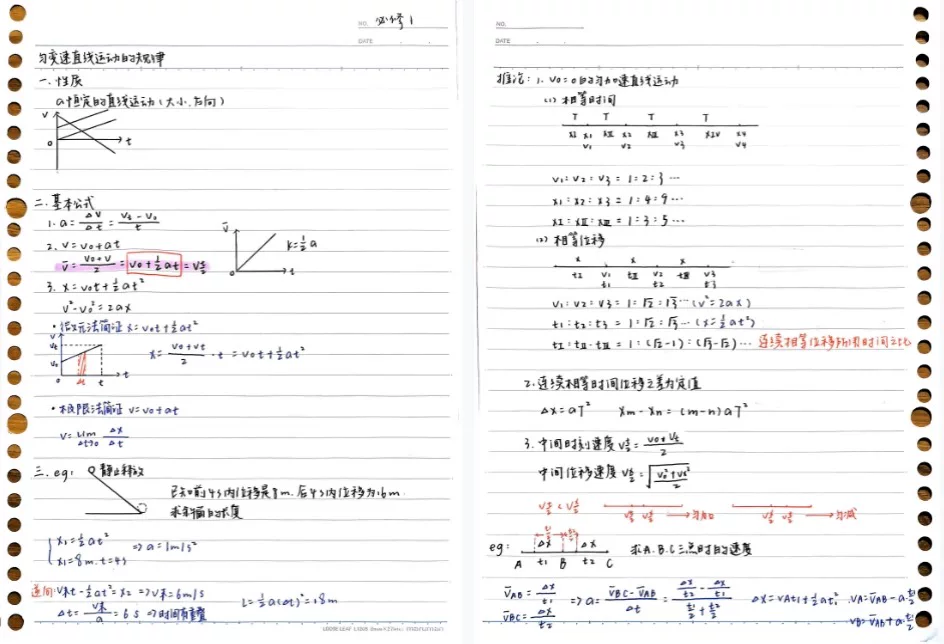 NO. 必修1
DATE
匀变速直线运动的规律
一.性质
a恒定的直线运动(大小.方向)
v
o
t
二.基本公式
1. a = Δv/Δt = (vt - v0)/t
2. v = v0 + at
v̄ = (v0+v)/2 = v0 + ½at = v t/2
v̄
k = ½a
o
t
3. x = v0t + ½at²
v² - v0² = 2ax
·微元法简证 x = v0t + ½at²
v
vt
v0
o
Δt
t
t
x = (v0+vt)/2 · t = v0t + ½at²
·极限法简证 v = v0 + at
v = lim Δt→0 Δx/Δt
三. eg:
静止释放
已知前4s内位移是8m.后4s内位移为16m.
求斜面的长度
x1 = ½at²
x1 = 8m. t = 4s
⇒ a = 1m/s²
逆向: v末t - ½at² = x2 ⇒ v末 = 6m/s
Δt = v末/a = 6s ⇒ 时间有重叠
L = ½a(Δt)² = 18m
LOOSE LEAF
NO.
DATE
推论: 1. v0=0的匀加速直线运动
(1) 相等时间
T T T T
xI x1 xII x2 xIII x3 xIV x4
v1 v2 v3 v4
v1 : v2 : v3 = 1 : 2 : 3 …
x1 : x2 : x3 = 1 : 4 : 9 …
xI : xII : xIII = 1 : 3 : 5 …
(2) 相等位移
x x x
tI v1 tII v2 tIII v3
t1 t2 t3
v1 : v2 : v3 = 1 : √2 : √3 … (v² = 2ax)
t1 : t2 : t3 = 1 : √2 : √3 … (x = ½at²)
tI : tII : tIII = 1 : (√2-1) : (√3-√2) … 连续相等位移所用时间之比
2.连续相等时间位移之差为定值
Δx = aT² xm - xn = (m-n)aT²
3. 中间时刻速度 v t/2 = (v0+vt)/2
中间位移速度 v x/2 = √((v0²+vt²)/2)
v t/2 < v x/2
v t/2 v x/2 → 匀加
v x/2 v t/2 → 匀减
eg:
Δx Δx
A t1 B t2 C
求A.B.C三点时的速度
v̄AB = Δx/t1
v̄BC = Δx/t2
⇒ a = (v̄BC - v̄AB)/Δt = (Δx/t2 - Δx/t1)/(t1/2 + t2/2)
Δx = vAt1 + ½at1² . vA = v̄AB - a·t1/2
vB = v̄AB + a·t1/2